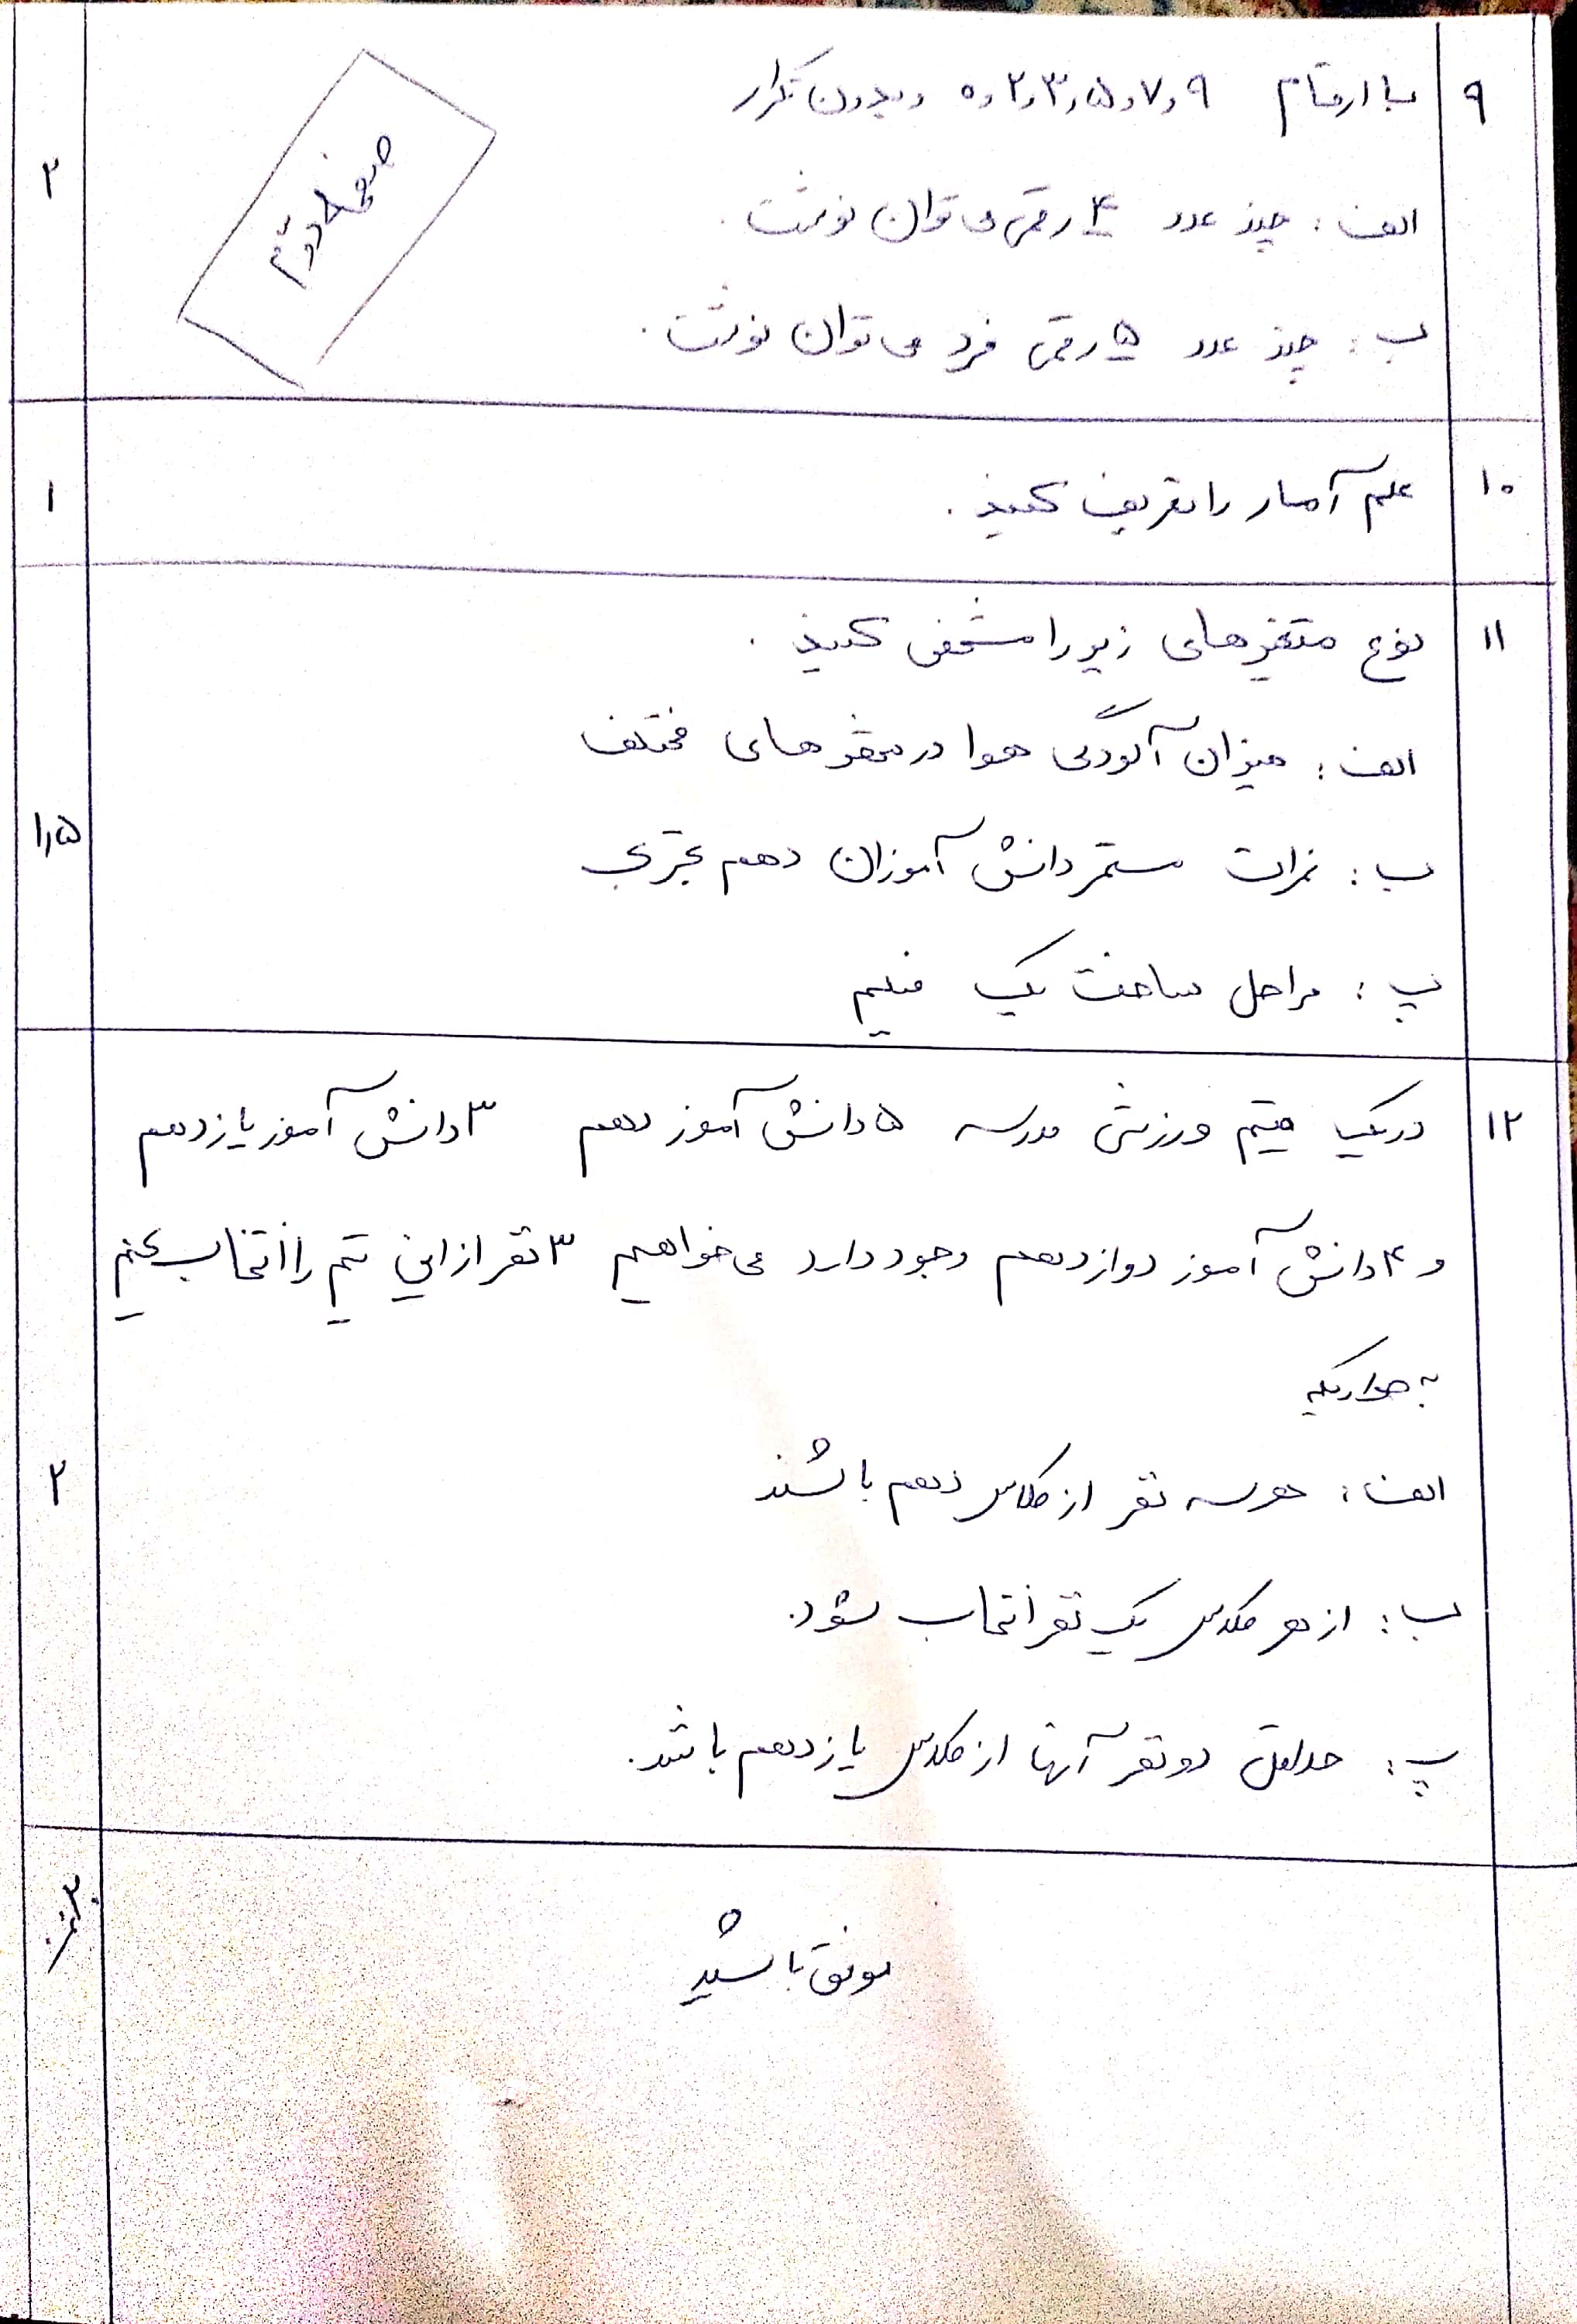 ۹ با ارقام ۹ و ۷ و ۵ و ۳ و ۲ و ۰ و بدون تکرار
صفحه دوّم
۲
الف : چند عدد ۴ رقمی می توان نوشت .
ب : چند عدد ۵ رقمی فرد می توان نوشت .
۱۰ علم آمار را تعریف کنید .
۱
۱۱ نوع متغیرهای زیر را مشخص کنید .
الف : میزان آلودگی هوا در شهرهای مختلف
۱٫۵
ب : نمرات مستمر دانش آموزان دهم تجربی
پ : مراحل ساخت یک فیلم
۱۲ در یک تیم ورزشی مدرسه ۵ دانش آموز دهم ۳ دانش آموز یازدهم
و ۴ دانش آموز دوازدهم وجود دارد می خواهیم ۳ نفر از این تیم را انتخاب کنیم
به طوریکه
۲
الف : هر سه نفر از کلاس دهم باشند
ب : از هر کلاس یک نفر انتخاب شود .
پ : حداقل دو نفر آنها از کلاس یازدهم باشد .
موفق باشید